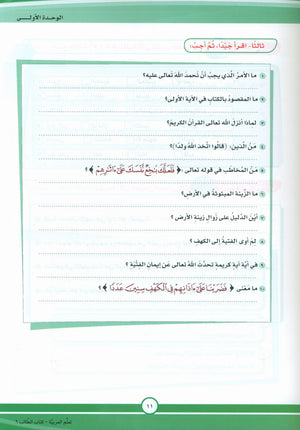 الوحدة الأولى
ثالثًا- اقرأ جَيِّدًا، ثُمَّ أَجِبْ:
١ ما الأمرُ الَّذي يجبُ أنْ نَحمدَ اللهَ تعالى عليه؟
٢ ما المقصودُ بالكتابِ في الآيةِ الأولى؟
٣ لماذا أنزلَ اللهُ تعالى القرآنَ الكريمَ؟
٤ مَنِ الَّذينَ: (قالُوا اتَّخَذَ اللهُ ولدًا)؟
٥ مَنِ المُخاطَب في قوله تعالى ﴿ فَلَعَلَّكَ بَٰخِعٌ نَّفْسَكَ عَلَىٰٓ ءَاثَٰرِهِمْ ﴾؟
٦ ما الزِّينةُ المبثوثةُ في الأرضِ؟
٧ أينَ الدَّليلُ على زوالِ زينةِ الأرضِ؟
٨ لِمَ أوى الفتيةُ إلى الكهفِ؟
٩ في أيَّةِ آيةٍ كريمةٍ تحدَّثَ اللهُ تعالى عَن إيمانِ الفِتْيَةِ؟
١٠ ما مَعْنى ﴿ فَضَرَبْنَا عَلَىٰٓ ءَاذَانِهِمْ فِى ٱلْكَهْفِ سِنِينَ عَدَدًا ﴾؟
١١
تعلّم العربيّة - كتاب الطّالب ٦